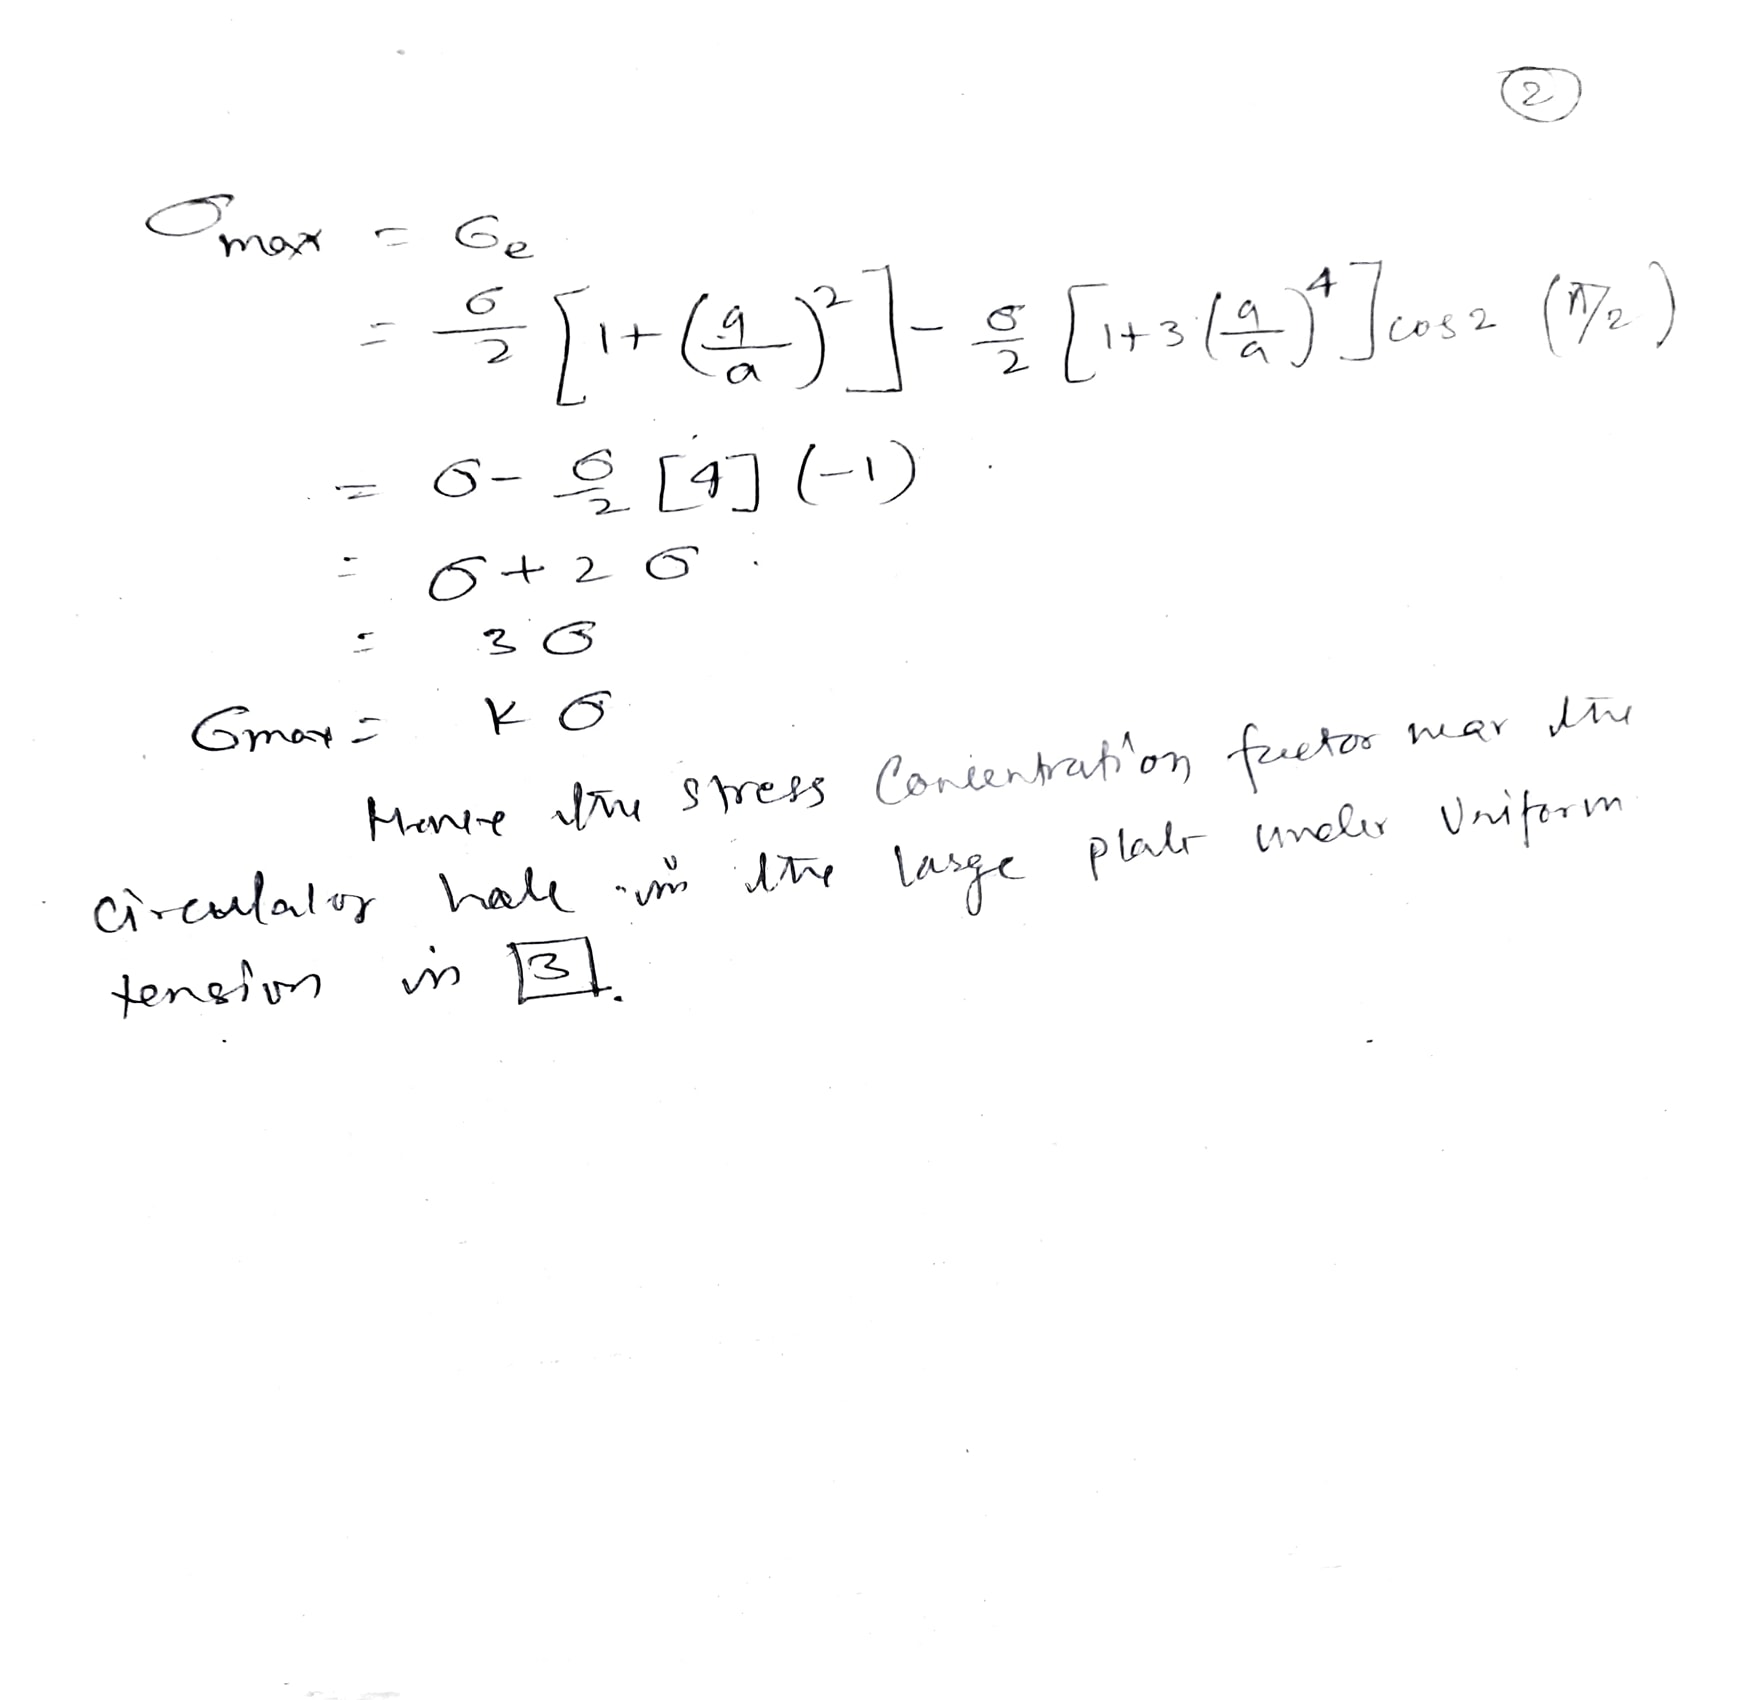 2
σmax = σe
= σ/2 [1+(a/a)²] - σ/2 [1+3(a/a)⁴] cos 2 (π/2)
= σ - σ/2 [4] (-1)
= σ + 2σ
= 3σ
σmax = Kσ
Hence the stress Concentration factor near the
circulator hole in the large plate under Uniform
tension is 3.